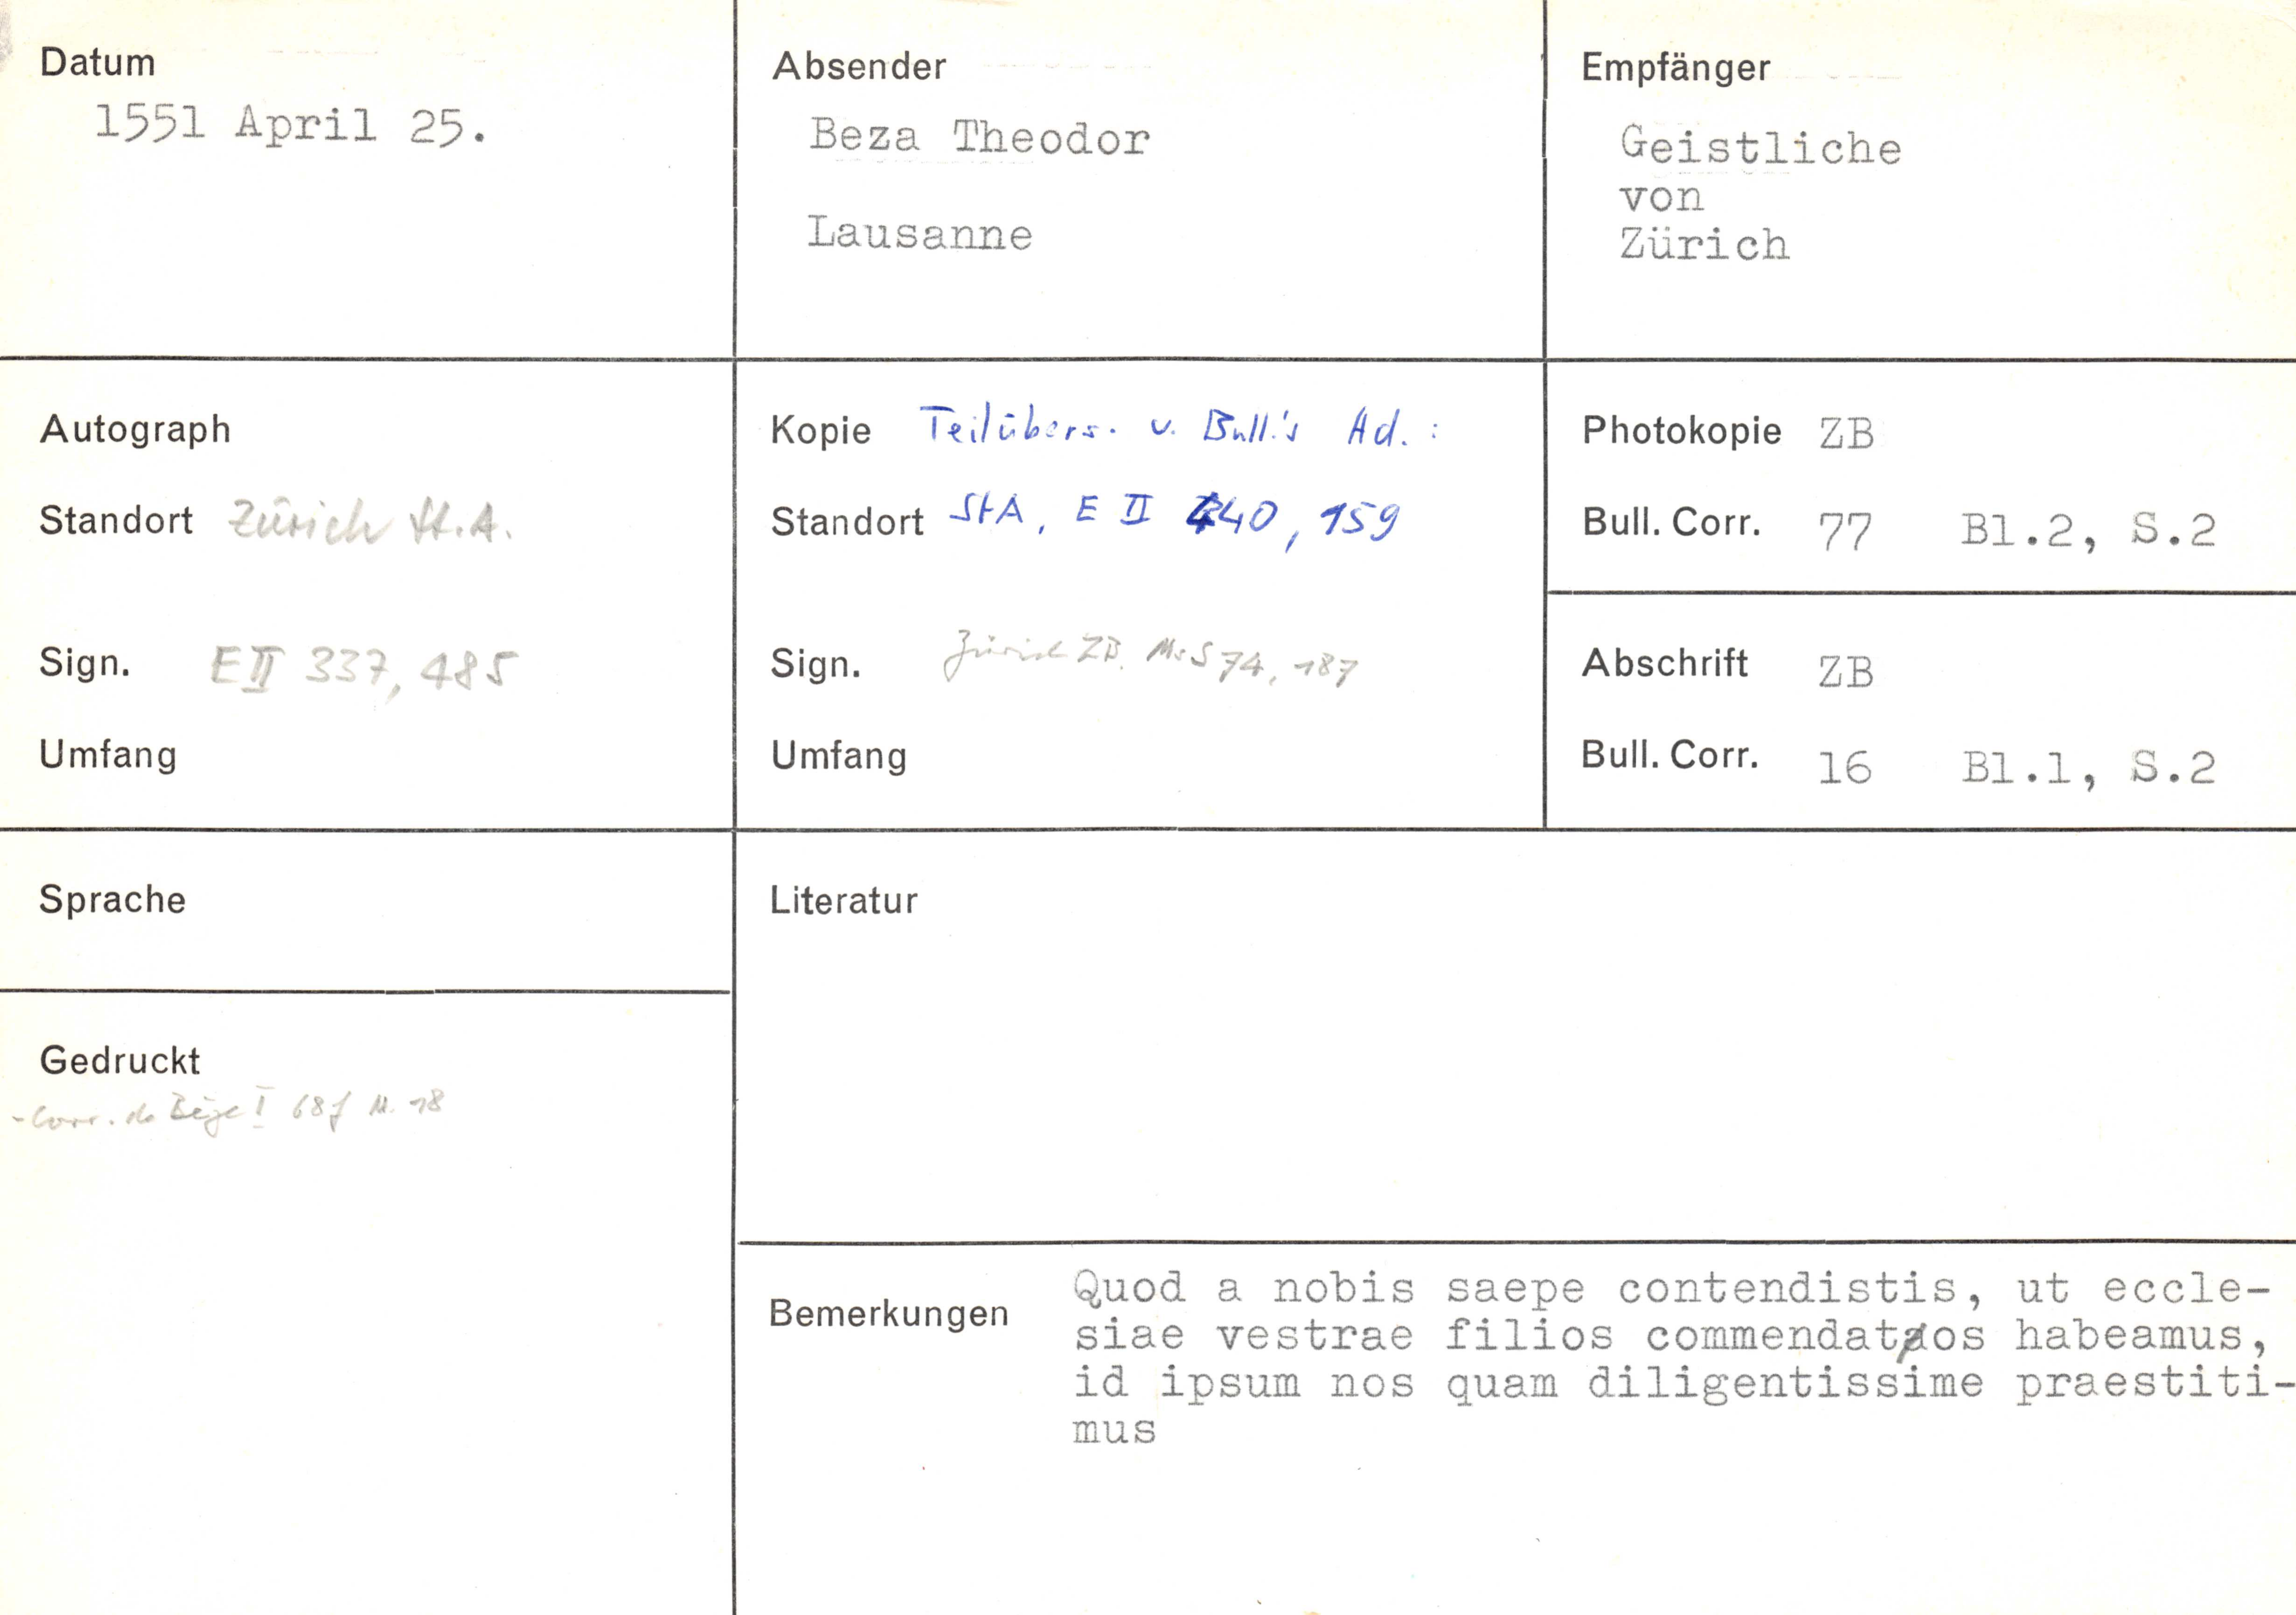 Datum
1551 April 25.
Absender
Beza Theodor
Lausanne
Empfänger
Geistliche
von
Zürich
Autograph
Standort Zürich St.A.
Sign. E II 337, 485
Umfang
Kopie Teilübers. v. Bull.'s Hd.:
Standort StA, E II 440, 159
Sign. Zürich ZB. Ms S 74, 187
Umfang
Photokopie ZB
Bull. Corr. 77 Bl.2, S.2
Abschrift ZB
Bull. Corr. 16 Bl.1, S.2
Sprache
Gedruckt
- Corr. de Bèze I 68f N. 18
Literatur
Bemerkungen
Quod a nobis saepe contendistis, ut eccle-
siae vestrae filios commendatos habeamus,
id ipsum nos quam diligentissime praestiti-
mus